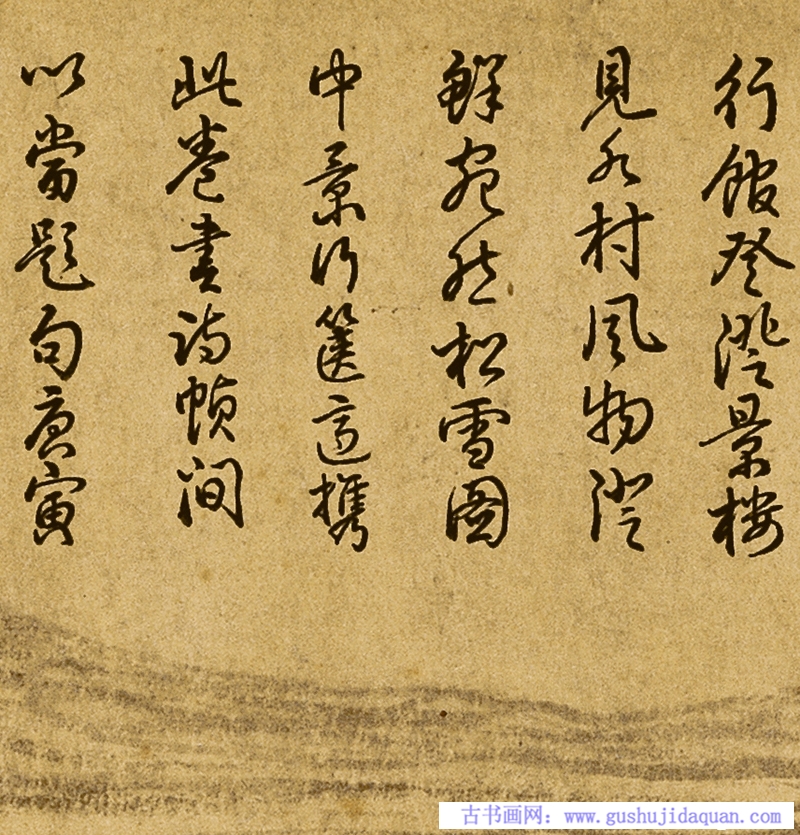 行館登澄景樓
見水村風物澄
鮮宛然松雪圖
中景行篋適攜
此卷書詩幀間
以當題句庚寅
古书画网：www.gushujidaquan.com